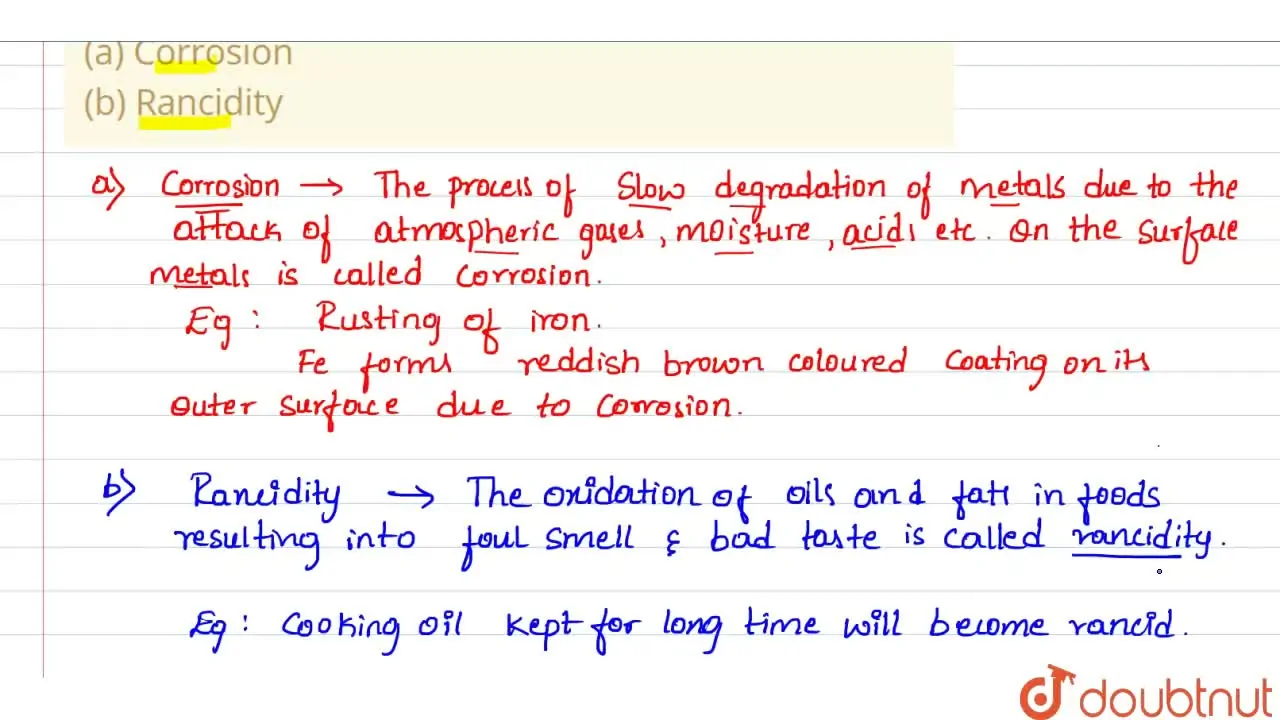 (a) Corrosion
(b) Rancidity
a) Corrosion → The process of slow degradation of metals due to the
attack of atmospheric gases, moisture, acids etc. On the surface
metals is called corrosion.
Eg : Rusting of iron.
Fe forms reddish brown coloured coating on its
outer surface due to corrosion.
b) Rancidity → The oxidation of oils and fats in foods
resulting into foul smell & bad taste is called rancidity.
Eg : Cooking oil kept for long time will become rancid.
doubtnut